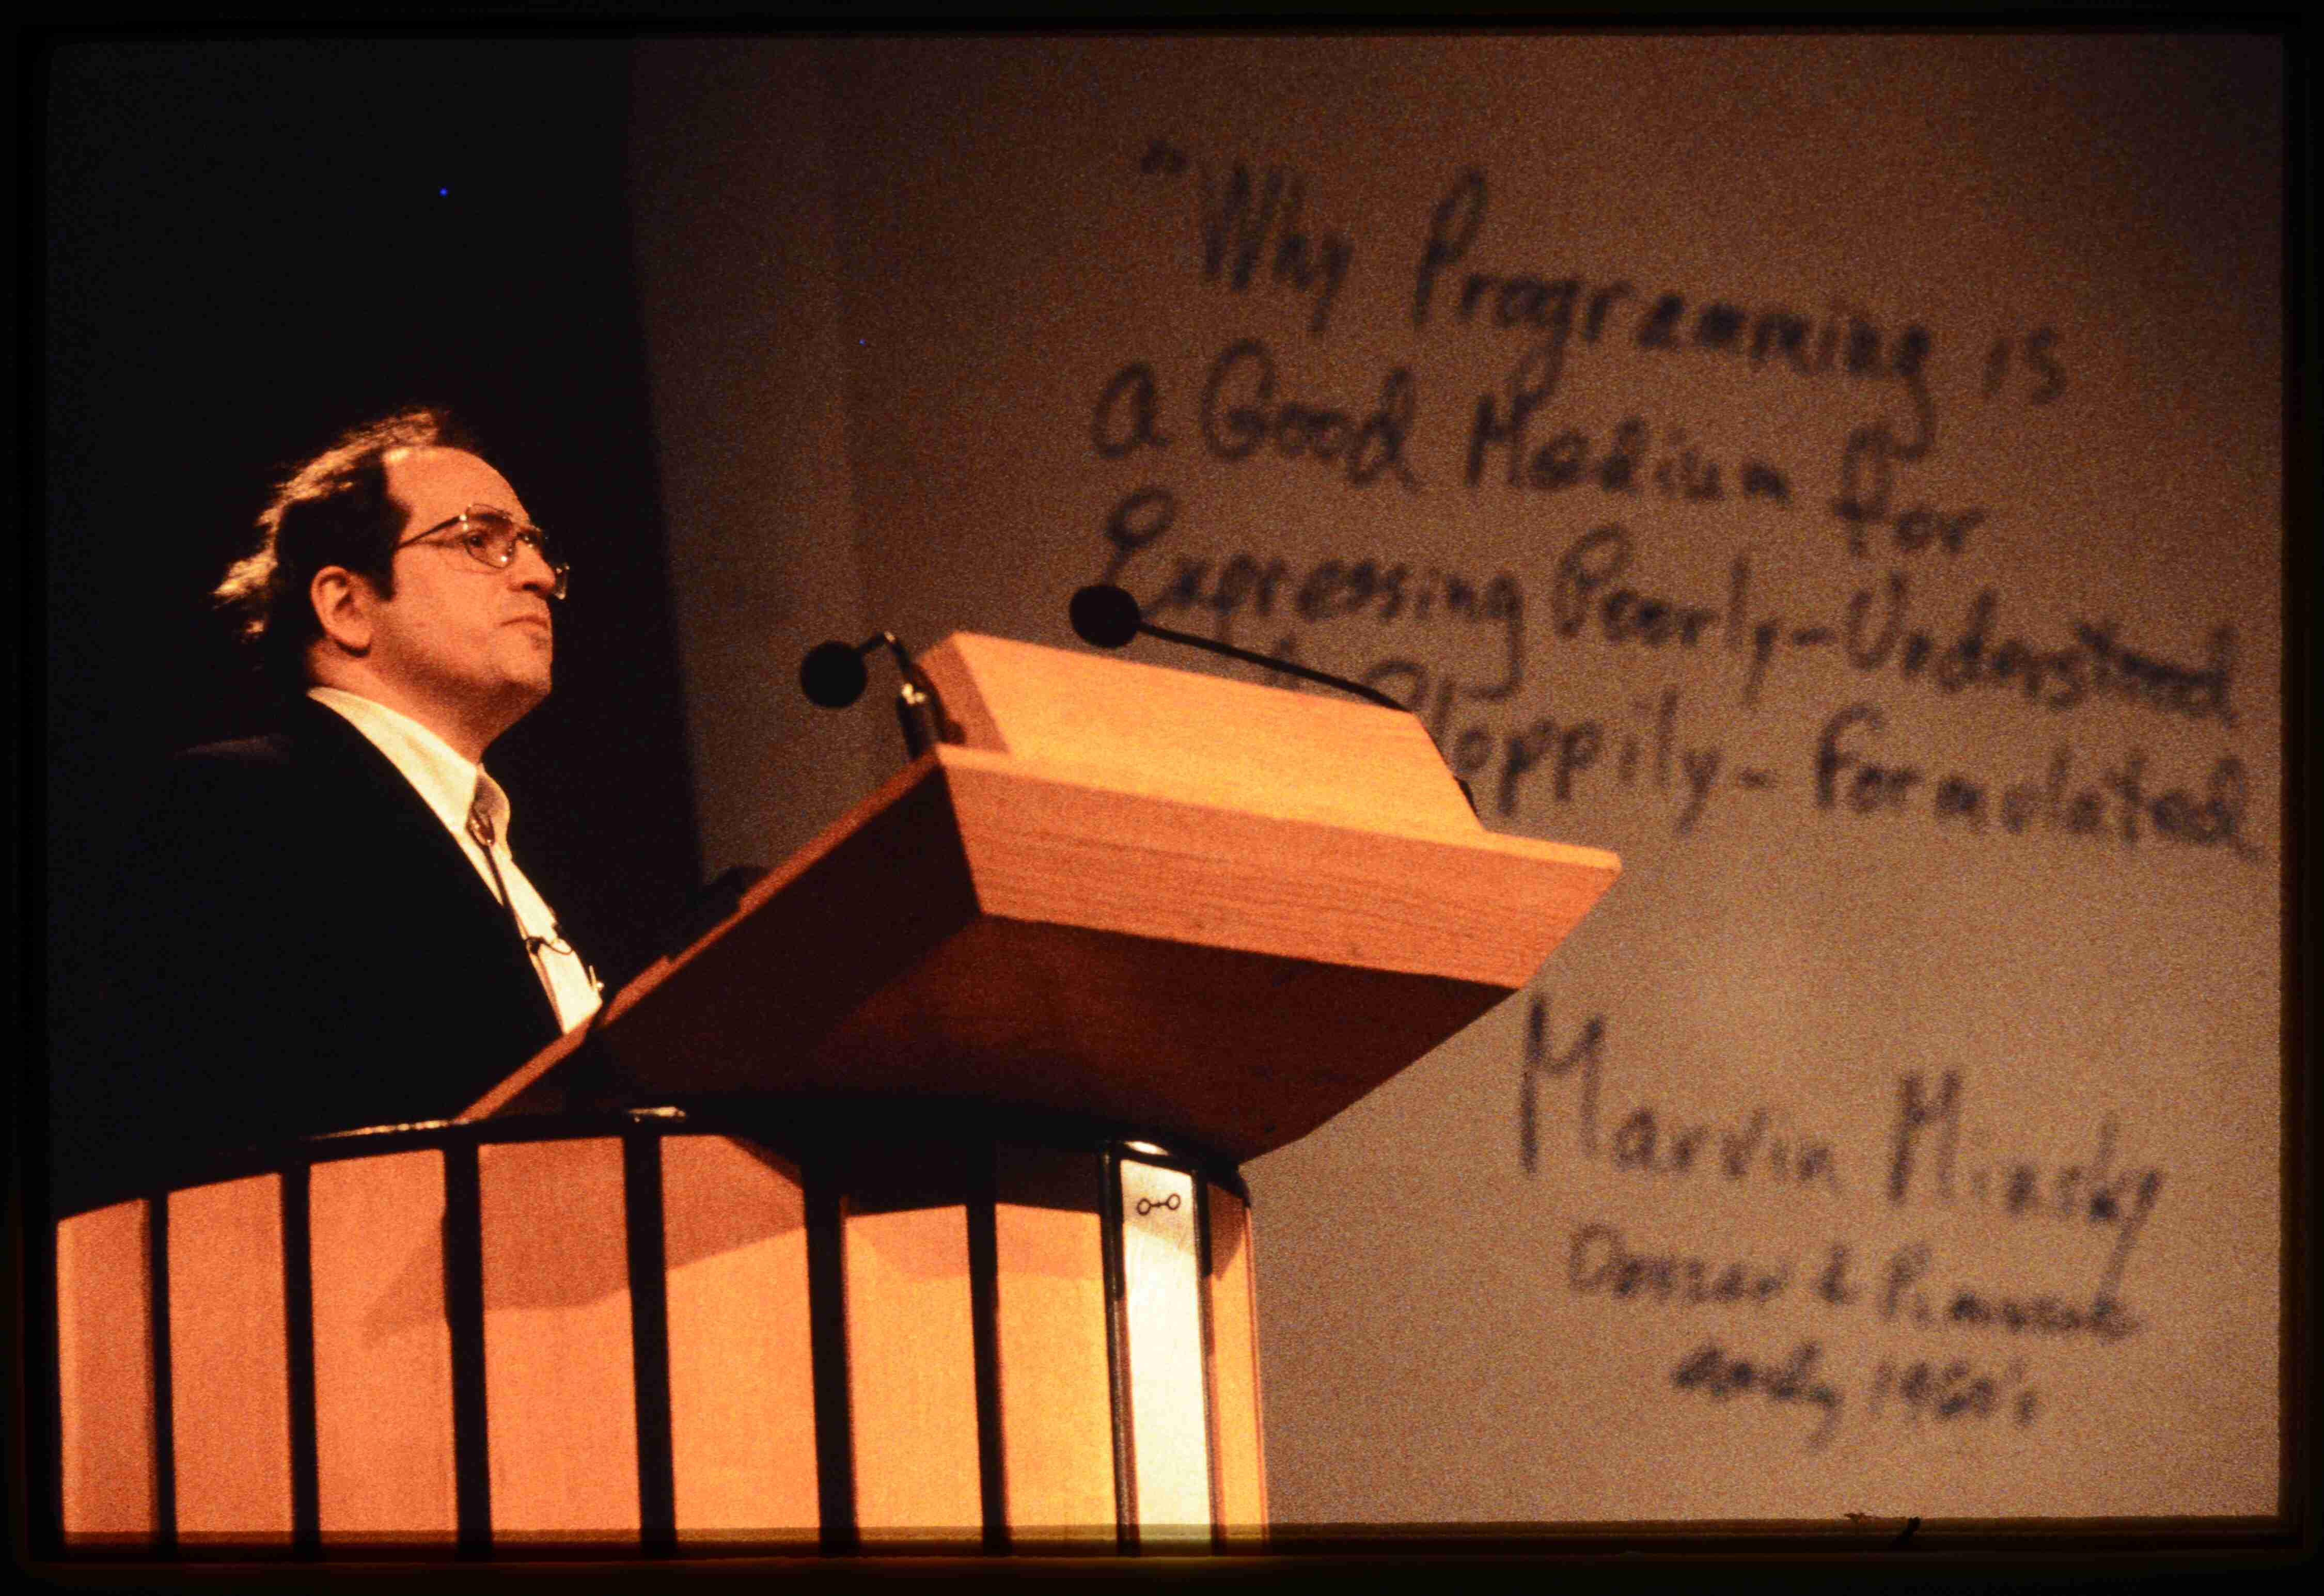 "Why Programming is
a Good Medium for
Expressing Poorly-Understood
Sloppily-Formulated
Marvin Minsky
early 1960's